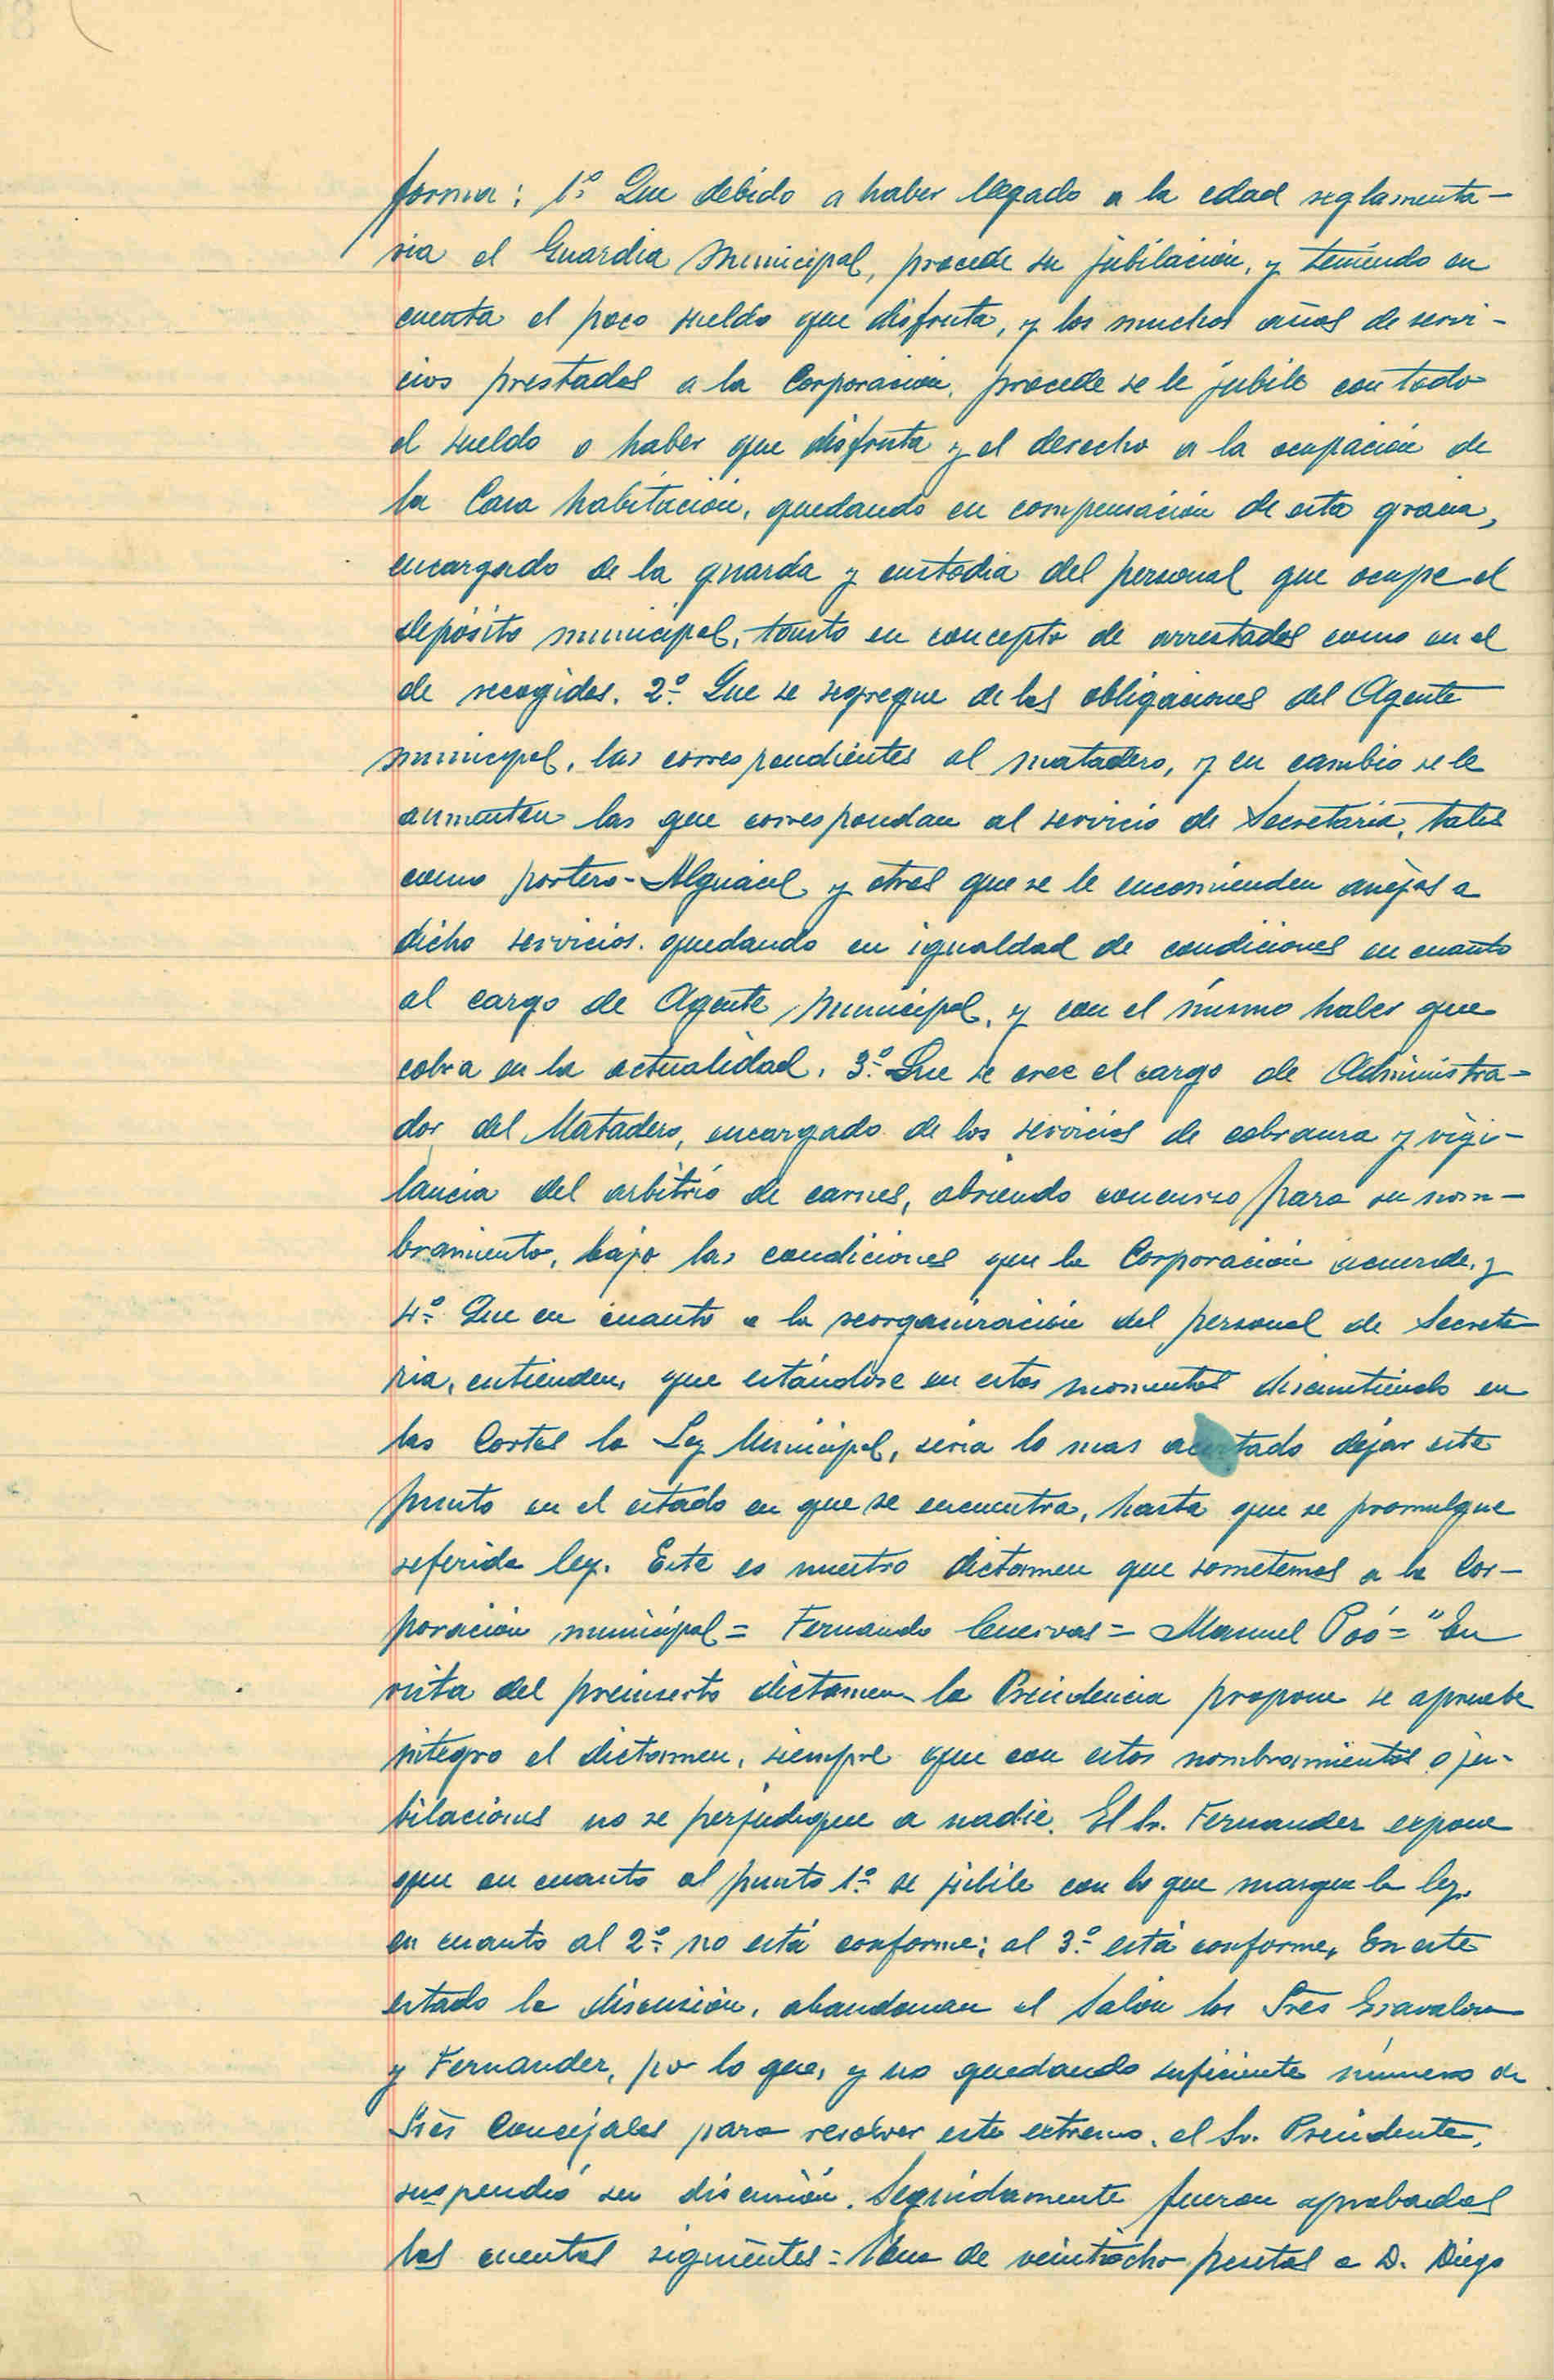 forma: 1º Que debido a haber llegado a la edad reglamenta-
ria el Guardia Municipal, procede su jubilación, y teniendo en
cuenta el poco sueldo que disfruta, y los muchos años de servi-
cios prestados a la Corporación, procede se le jubile con todo
el sueldo o haber que disfruta y el derecho a la ocupación de
la Casa habitación, quedando en compensación de esta gracia,
encargado de la guarda y custodia del personal que ocupe el
depósito municipal, tanto en concepto de arrestados como en el
de recogidos. 2º Que se segregue de las obligaciones del Agente
municipal, las correspondientes al matadero, y en cambio se le
aumenten las que correspondan al servicio de Secretaria, tales
como portero-Alguacil y otras que se le encomienden anejas a
dicho servicios. quedando en igualdad de condiciones en cuanto
al cargo de Agente Municipal, y con el mismo haber que
cobra en la actualidad. 3º Que se cree el cargo de Administra-
dor del Matadero, encargado de los servicios de cobranza y vigi-
lancia del arbitrio de carnes, abriendo concurso para su nom-
bramiento, bajo las condiciones que la Corporación acuerde, y
4º Que en cuanto a la reorganización del personal de Secreta-
ria, entienden, que estándose en estos momentos discutiendo en
las Cortes la Ley Municipal, seria lo mas acertado dejar este
punto en el estado en que se encuentra, hasta que se promulgue
referida ley. Este es nuestro dictamen que sometemos a la Cor-
poración municipal = Fernando Cuervas = Manuel Poó = " En
vista del preinserto dictamen la Presidencia propone se apruebe
integro el dictamen, siempre que con estos nombramientos o ju-
bilaciones no se perjudique a nadie. El Sr. Fernandez expone
que en cuanto al punto 1º se jubile con lo que marque la ley.
en cuanto al 2º no está conforme; al 3º está conforme. En este
estado la discusión, abandonan el Salón los Sres
y Fernandez, por lo que, y no quedando suficiente número de
Sres Concejales para resolver este extremo, el Sr. Presidente,
suspendió su discusión. Seguidamente fueron aprobadas
las cuentas siguientes = Una de veintiocho pesetas a D. Diego